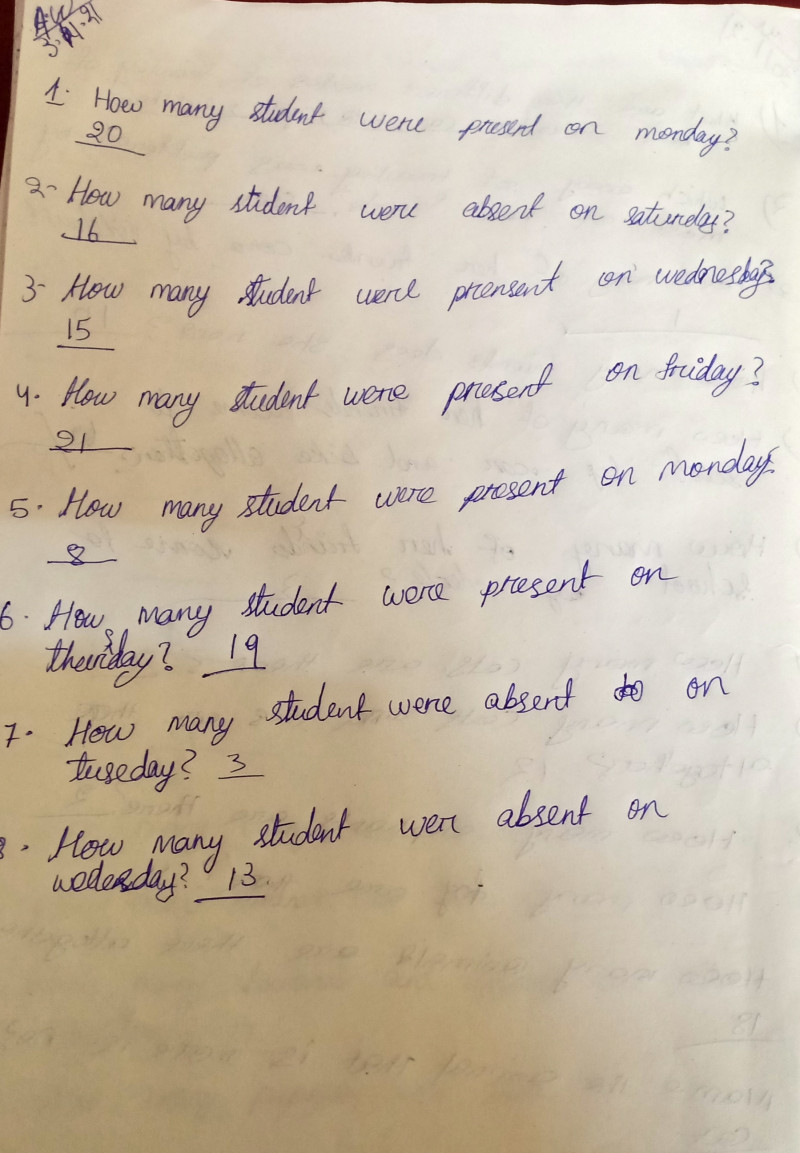 A.W
3.11.21
1. How many student were present on monday?
20
2- How many student were absent on saturday?
16
3- How many student were prensent on wednesday?
15
4. How many student were present on friday?
21
5. How many student were present on monday?
8
6. How many student were present on
thursday? 19
7. How many student were absent on
tuseday? 3
8. How many student were absent on
wedesday? 13